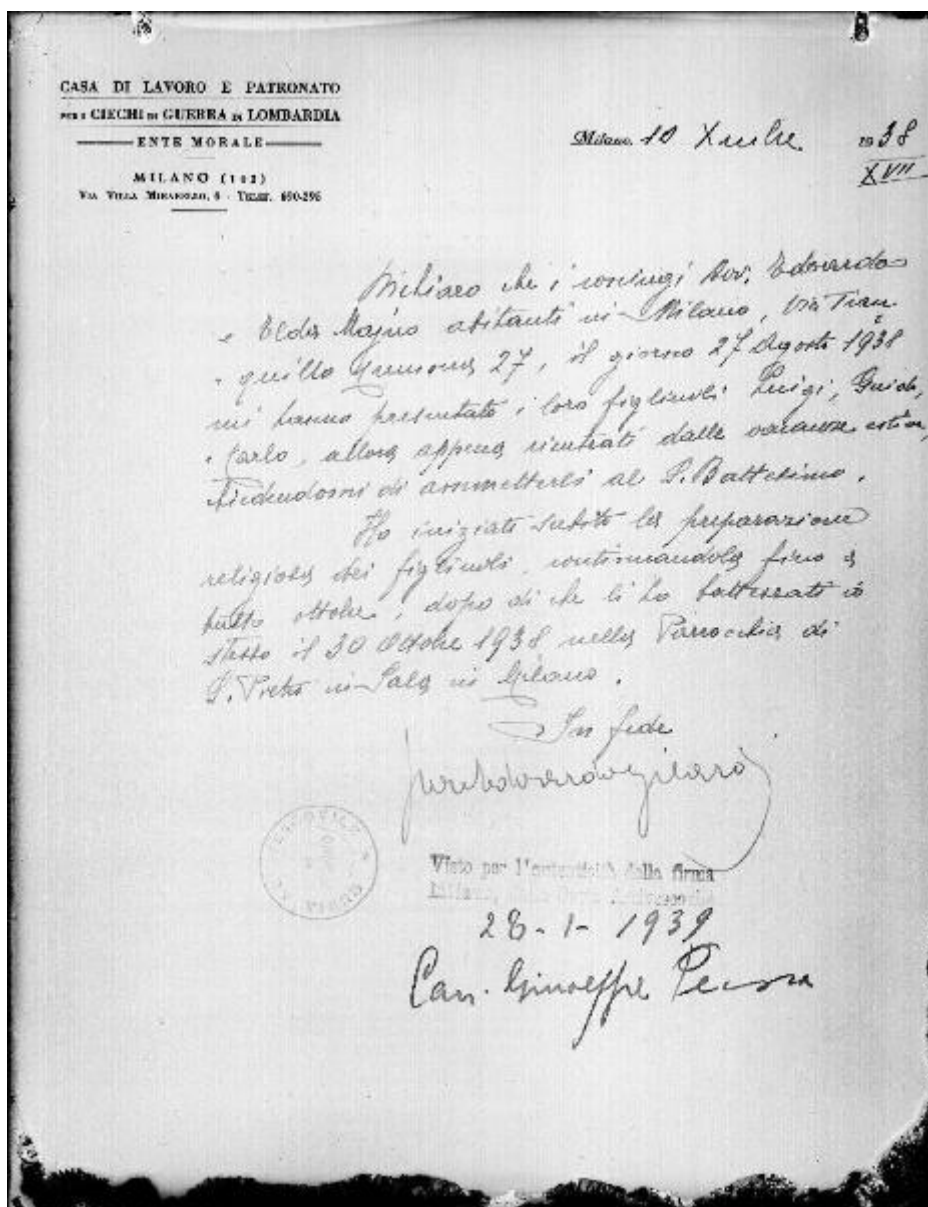 CASA DI LAVORO E PATRONATO
PER I CIECHI DI GUERRA DI LOMBARDIA
ENTE MORALE
MILANO (102)
VIA VILLA MIRABELLO, 6 - TELEF. 690-296
Milano, 10 Xmbre 1938
XVII
Dichiaro che i coniugi Avv. Edoardo
e Elda Majno abitanti in Milano, Via Tran-
quillo Cremona 27, il giorno 27 Agosto 1938
mi hanno presentato i loro figliuoli Luigi, Guido,
e Carlo, allora appena rientrati dalle vacanze estive,
chiedendomi di ammetterli al S. Battesimo.
Ho iniziato subito la preparazione
religiosa dei figliuoli, continuandola fino a
tutto ottobre, dopo di che li ho battezzati io
stesso il 30 Ottobre 1938 nella Parrocchia di
S. Pietro in Sala in Milano.
In fede
Visto per l'autenticità della firma
Milano, dalla Curia Arcivescovile
28-1-1939
Can. Giuseppe